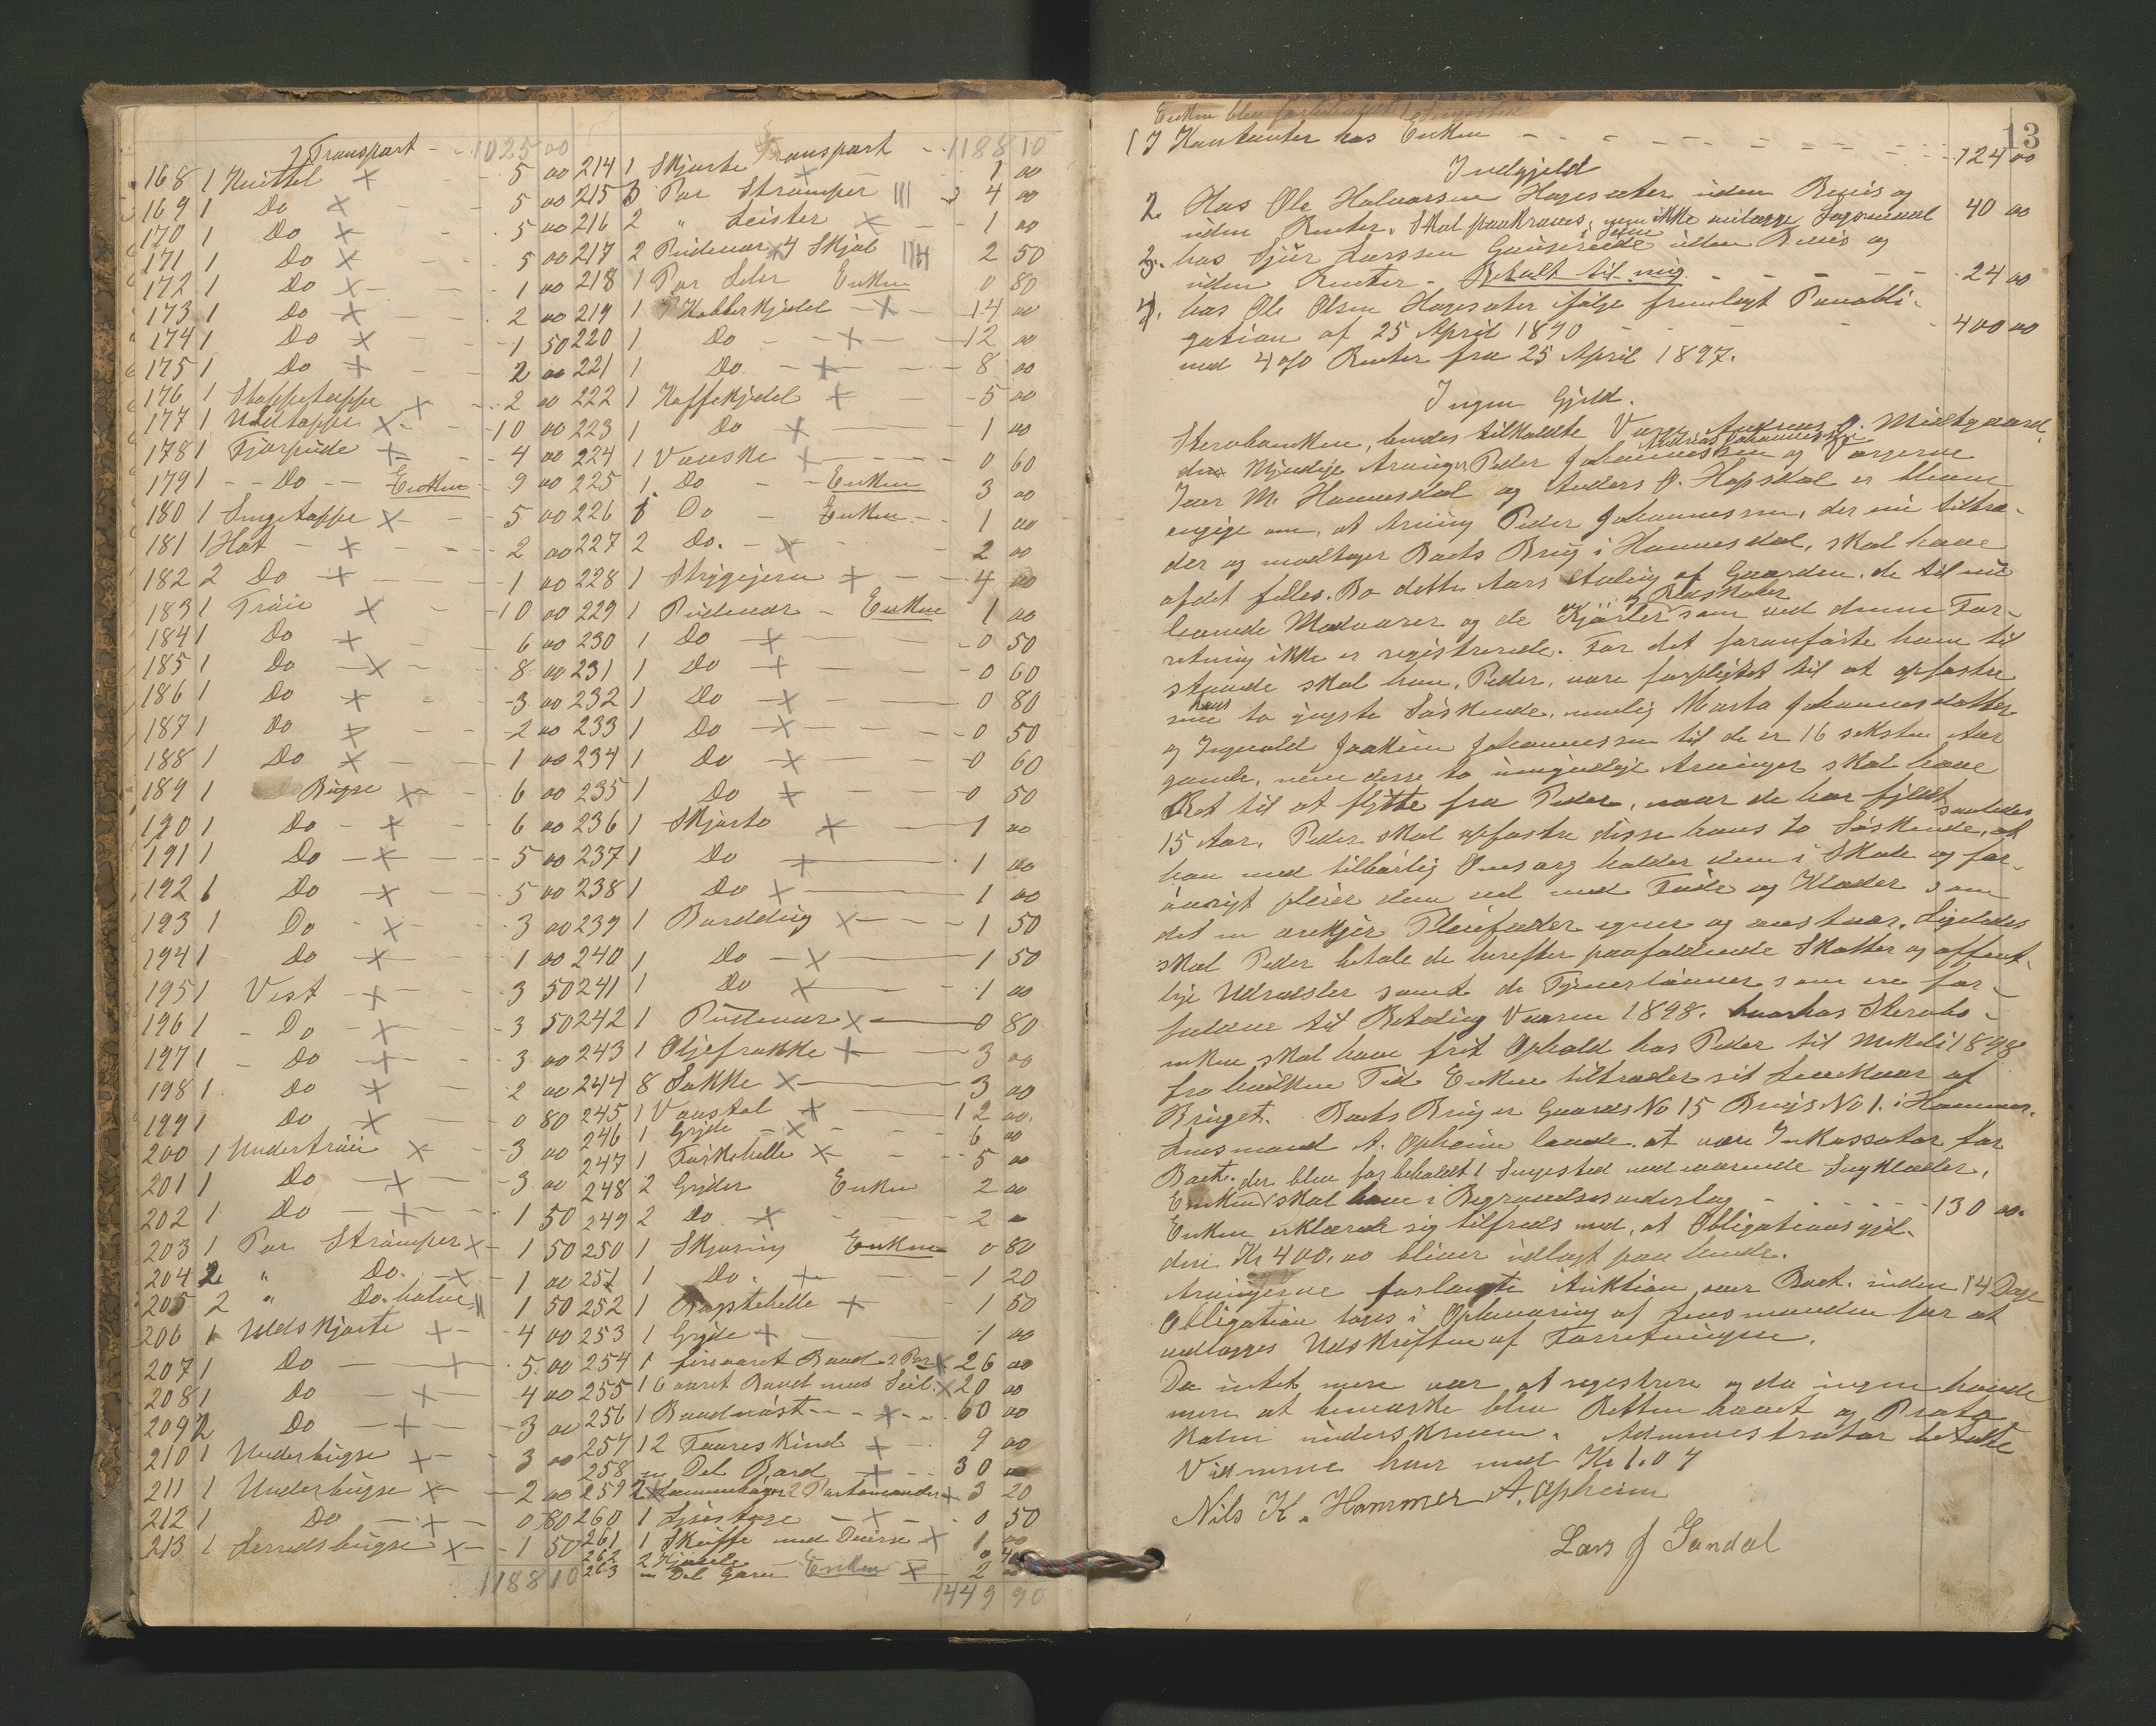 Transport 1025 00
168 1 Kuittel x 5 00
169 1 Do x 5 00
170 1 Do x 5 00
171 1 Do x 5 00
172 1 Do x 1 00
173 1 Do x 2 00
174 1 Do x 1 50
175 1 Do x 2 00
176 1 Stoppetæppe x 2 00
177 1 Uldtæppe x 10 00
178 1 Fjærpude x 4 00
179 1 Do Enken 9 00
180 1 Sengetæppe x 5 00
181 1 Hat x 2 00
182 2 Do x 1 00
183 1 Trøie x 10 00
184 1 Do x 6 00
185 1 Do x 8 00
186 1 Do x 3 00
187 1 Do x 2 00
188 1 Do x 1 00
189 1 Bugse x 6 00
190 1 Do x 6 00
191 1 Do x 5 00
192 1 Do x 5 00
193 1 Do x 3 00
194 1 Do x 1 00
195 1 Vest x 3 50
196 1 Do x 3 50
197 1 Do x 3 00
198 1 Do x 2 00
199 1 Do x 0 80
200 1 Undertrøie x 3 00
201 1 Do x 3 00
202 1 Do x 1 50
203 1 Par Strømper x 1 50
204 2 " Do. x 1 00
205 2 " Do. halve || 1 50
206 1 Uldskjorte x 4 00
207 1 Do x 5 00
208 1 Do x 4 00
209 2 Do x 3 00
210 1 Underbugse x 3 00
211 1 Underbugse x 2 00
212 1 Do x 0 80
213 1 Lerredsbugse x 1 50
1188 10
Transport 1188 10
214 1 Skjorte x 1 00
215 3 Par Strømper ||| 4 00
216 2 " Leister x 1 00
217 2 Pudevar x 4 Skjøl |||| 2 50
218 1 Par Seler Enken 0 80
219 1 Kobberkjedel x 14 00
220 1 Do x 12 00
221 1 Do x 8 00
222 1 Kaffekjedel x 5 00
223 1 Do x 1 00
224 1 Vanske x 0 60
225 1 Do Enken 3 00
226 1 Do Enken 1 00
227 2 Do. x 2 00
228 1 Strygejern x 4 00
229 1 Pudevar Enken 1 00
230 1 Do x 0 50
231 1 Do x 0 60
232 1 Do x 0 80
233 1 Do x 0 50
234 1 Do x 0 60
235 1 Do x 0 50
236 1 Skjorte x 1 00
237 1 Do x 1 00
238 1 Do x 1 00
239 1 Borddug x 1 50
240 1 Do x 1 50
241 1 Do x 1 00
242 1 Pudevar x 0 80
243 1 Oljefrakke x 3 00
244 8 Sække x 3 00
245 1 Vævstol x 12 00.
246 1 Gryde x 6 00
247 1 Takkehelle x 5 00
248 2 Gryder Enken 2 00
249 2 Do x 2 00
250 1 Skjæring Enken 0 80
251 1 Do. x 1 20
252 1 Bagstehelle x 1 50
253 1 Gryde x 1 00
254 1 firæaret Baad 2 Par x 26 00
255 1 6 aaret Baad med Seil x 20 00
256 1 Baadnøst x 60 00
257 12 Faareskind x 9 00
258 en Del Bord x 30 00
259 2 x 3 20
260 1 x 0 50
261 1 Skuffe med Diverse x 1 00
262 2 Kjævle 0 40
263 en Del Garn Enken x 2 00
1449 90
13
Enken blev forbeholdt 1 Sengested
1) I Kontanter hos Enken 124 00
Indgjeld
2. Hos Ole Halvorsen Hagesæter uden Bevis og
uden Renter. Skal paakræves, men ikke anlægge Søgsmaal 40 00
3. hos Sjur Larssen uden Bevis og
uden Renter. Betalt til mig. 24 00
4. hos Ole Olsen Hagesæter ifølge fremlagt Panobli-
gation af 25 April 1890 400 00
med 4 o/o Renter fra 25 April 1897.
Ingen Gjeld.
Stervboenken, hendes tilkaldte Værge Andreas J. Midtgaard,
den Myndige Arvinger Peder Johannessen og Værgerne
Iver M. Hannesdal og Anders J. Hopsdal er bleven
enige om, at Arving Peder Johannessen, der nu tiltræ-
der og modtager Boets Brug i Hannesdal, skal have
af det felles Bo dette Aars Avling af Gaarden, de til nu
havende Madvarer og de Kjørler og Buskaber som ved denne For-
retning ikke er registrerede. For det foranførte ham til
staaende skal han, Peder, være forpligtet til at opfostre
sine hans to yngste Søskende, nemlig Marta Johannesdatter
og Ingvald Joakim Johannessen til de er 16 seksten Aar
gamle, men disse to umyndige Arvinger skal have
Ret til at flytte fra Peder, naar de har fyldt
15 Aar. Peder skal opfostre disse hans to Søskende, saaledes at
han med tilbørlig Omsorg holder dem i Skole og for-
øvrigt pleier dem vel med Føde og Klæder som
det en ærekjær Pleiefader egner og anstaar. Ligeledes
skal Peder betale de herefter paafaldende Skatter og offent-
lige Udredsler samt de Tjenerlønner som ere for-
faldne til Betaling Vaaren 1898. Stervbo-
enken skal have frit Ophold hos Peder til Mikeli 1898
fra hvilken Tid Enken tiltræder sit Livøkaar af
Bruget. Boets Brug er Gaards No 15 Brugs No 1. i Hammer.
Lensmand A. Opheim lovede at være Inkassator for
Boet. der blev forbeholdt 1 Sengested med værende Sengklæder.
Enken skal have i Begravelsesvederlag 130 00.
Enken erklærede sig tilfreds med, at Obligationsgjel-
den Kr 400.00 bliver udlagt paa hende.
Arvingerne forlangte Auktion over Boet inden 14 Dage
Obligation toges i Opbevaring af Lensmanden for at
vedlægges Udskriften af Forretningen.
Da intet mere var at registrere og da ingen havde
mere at bemærke blev Retten hævet og Proto-
kolen underskreven. Administrator betalte
Vidnerne hver med Kr 1.04
Nils K. Hammer A. Opheim
Lars J Sandal